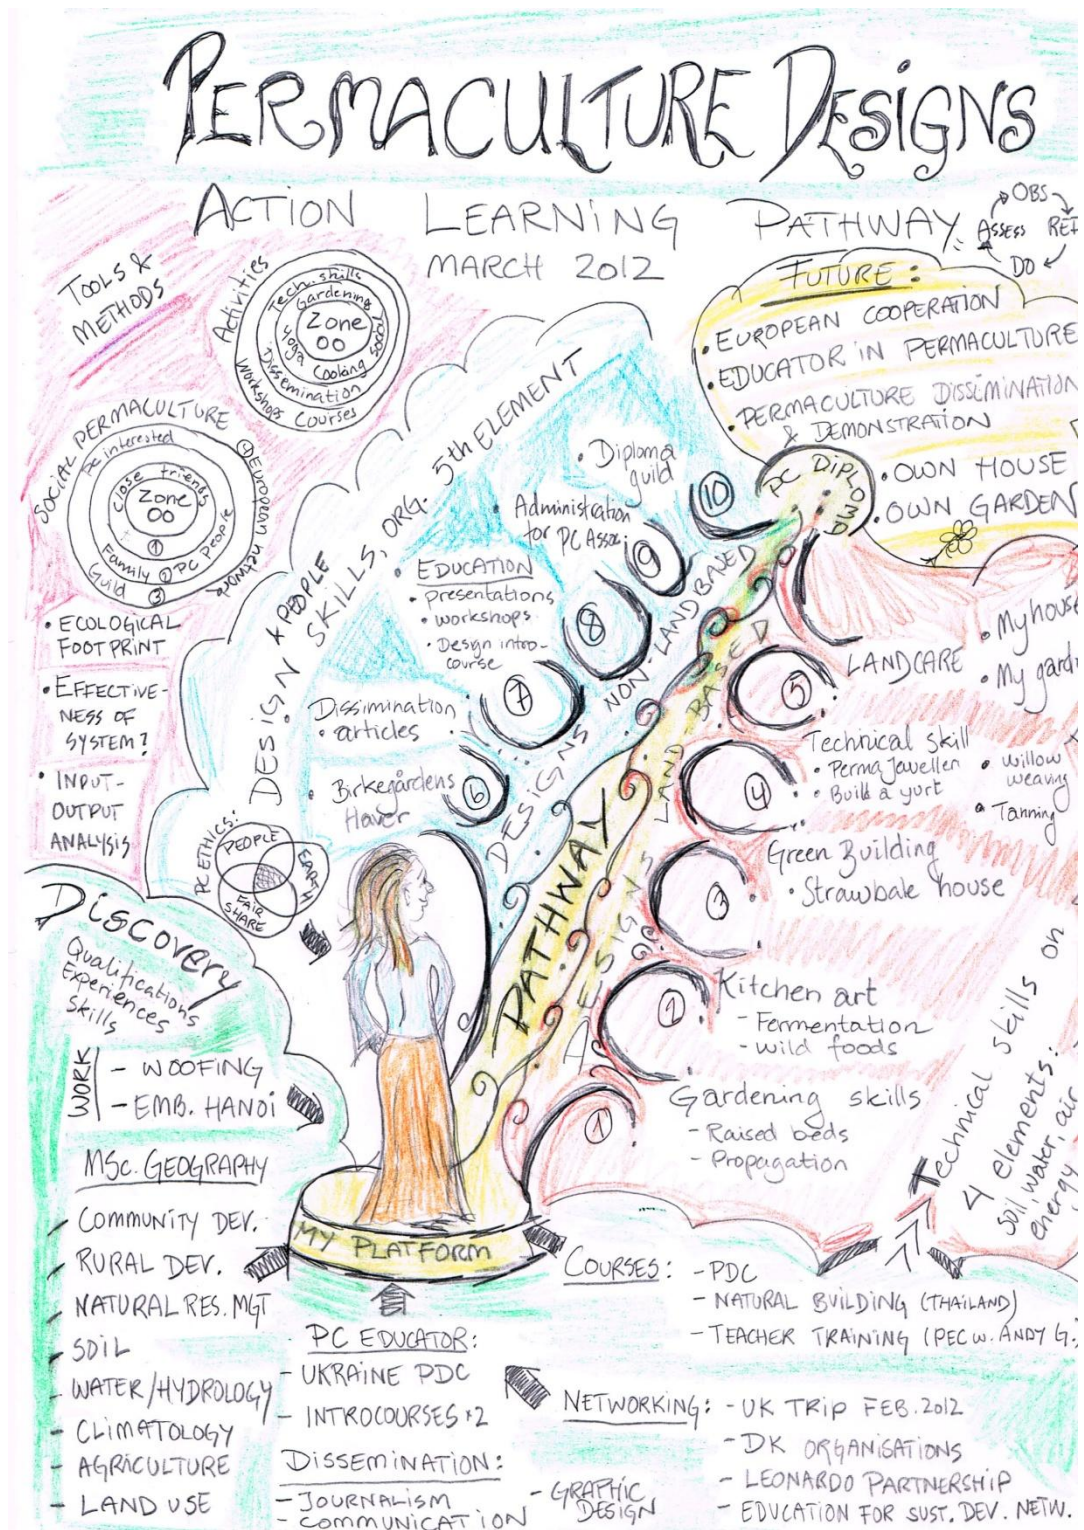 PERMACULTURE DESIGNS
ACTION LEARNING PATHWAY:
MARCH 2012
OBS
ASSESS
DO
TOOLS &
METHODS
Activities
Workshops Courses
Dissemination
Tech. skills
Gardening
Yoga Cooking Social
Zone
00
SOCIAL PERMACULTURE
be interested
close friends
Zone
00
①
Family ② PC People
Guild ③
④ European network
• ECOLOGICAL
FOOTPRINT
• EFFECTIVE-
NESS OF
SYSTEM?
• INPUT-
OUTPUT
ANALYSIS
PC ETHICS:
PEOPLE
EARTH
FAIR
SHARE
DESIGN & PEOPLE
SKILLS, ORG. 5th ELEMENT
• Diploma
guild
• Administration
for PC Assoc.
• EDUCATION
• presentations
• workshops
• Design intro-
course
Dissimination
• articles
• Birkegårdens
Haver
⑩
⑨
⑧
⑦
⑥
DESIGNS NON-LANDBASED
PATHWAY
DESIGNS LAND-BASED
PC DIPLOMA
FUTURE:
• EUROPEAN COOPERATION
• EDUCATOR IN PERMACULTURE
• PERMACULTURE DISSIMINATION
& DEMONSTRATION
• OWN HOUSE
• OWN GARDEN
LANDCARE
• My house
• My
⑤
Technical skill
• Perma Jeweller
• Build a yurt
• willow
weaving
• Tanning
④
Green Building
• Strawbale house
③
Kitchen art
- Fermentation
- wild foods
②
Gardening skills
- Raised beds
- Propagation
①
Technical skills on
4 elements:
soil, water, air
energy
Discovery
Qualifications
Experiences
Skills
WORK
- WOOFING
- EMB. HANOI
MSc. GEOGRAPHY
- COMMUNITY DEV.
- RURAL DEV.
- NATURAL RES. MGT
- SOIL
- WATER/HYDROLOGY
- CLIMATOLOGY
- AGRICULTURE
- LAND USE
MY PLATFORM
PC EDUCATOR:
- UKRAINE PDC
- INTROCOURSES *2
DISSEMINATION:
- JOURNALISM
- COMMUNICATION
- GRAPHIC
DESIGN
COURSES: - PDC
- NATURAL BUILDING (THAILAND)
- TEACHER TRAINING (PEC W. ANDY G.)
NETWORKING: - UK TRIP FEB. 2012
- DK ORGANISATIONS
- LEONARDO PARTNERSHIP
- EDUCATION FOR SUST. DEV. NETW.